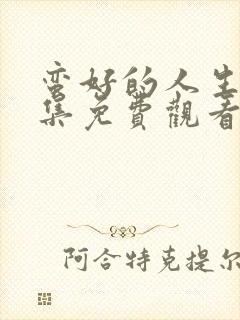 蛮好的人生
集免費觀看
阿合特克提尔